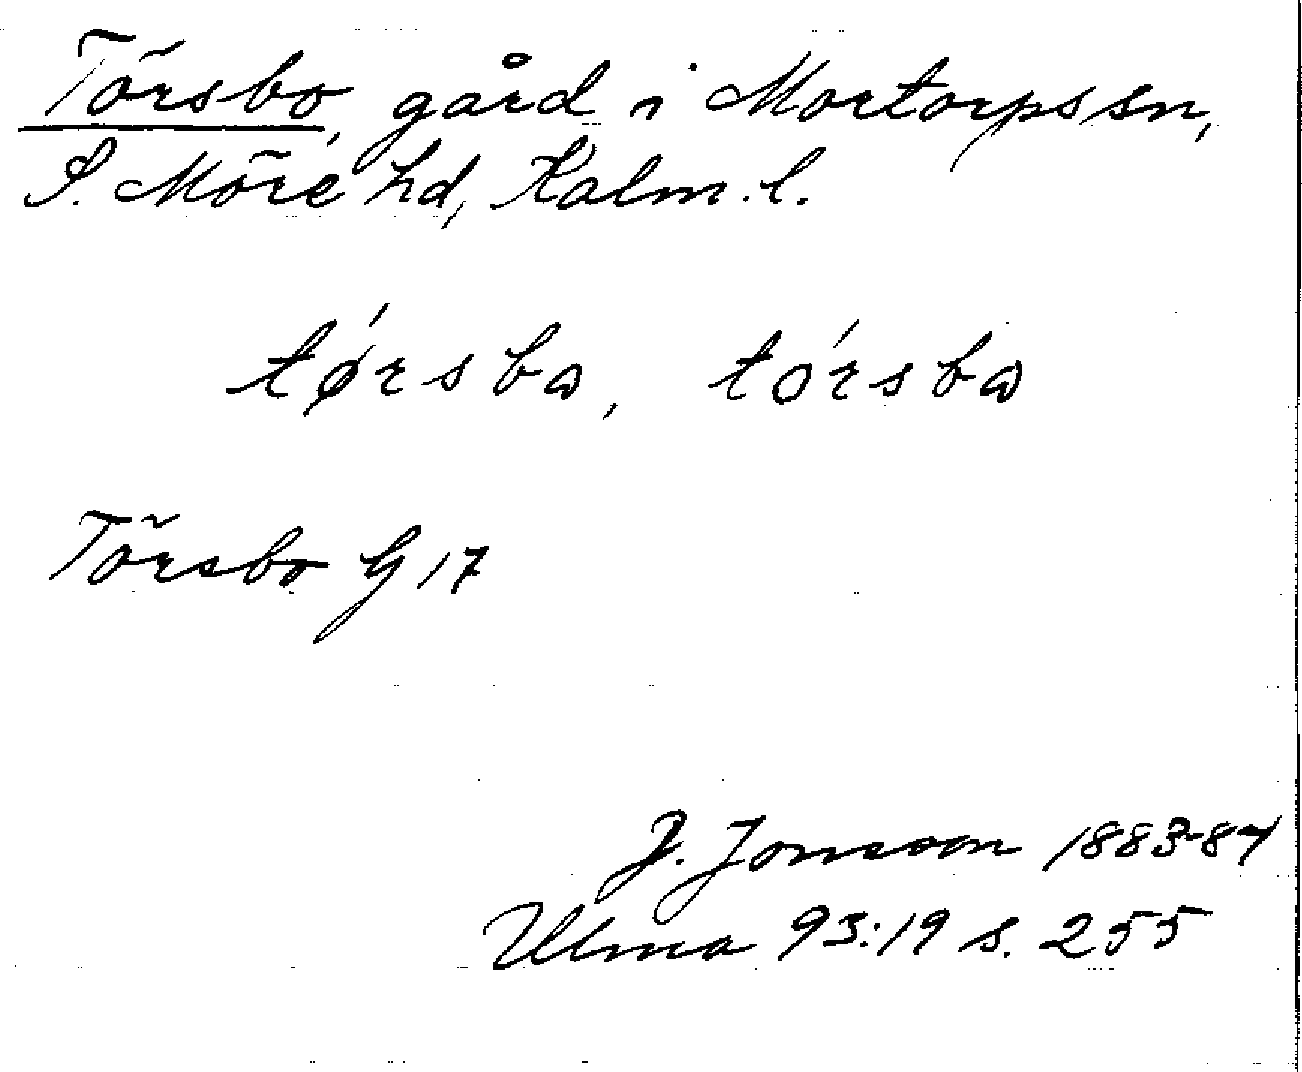 Törsbo, gård i Mortorps sn,
S. Möre hd, Kalm. l.
tǿrsbω, tórsbω
Törsbo G 17
J. Jonsson 1883-84
Ulma 93:19 s. 255